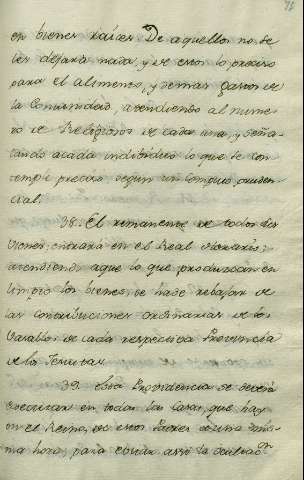 en bienes raices. De aquellos no se
les dejará nada, y de estos lo preciso
para el alimento, y demas gastos de
la Comunidad, atendiendo al nume-
ro de Religiosos de cada una, y seña-
lando a cada individuo lo que se con-
temple preciso segun un computo pruden-
cial.
38. El remanente de todos los
vienes, entrará en el Real Herario;
atendiendo a que lo que produzcan en
limpio los bienes, se ha de rebajar de
las contribuciones ordinarias de los
Vasallos de cada respectiva Provincia
de los
39. Esta Providencia se deverá
executar en todas las Casas, que hay
en el Reyno, de estos Padres de una mis-
ma hora, para evitar assi la ocultacion